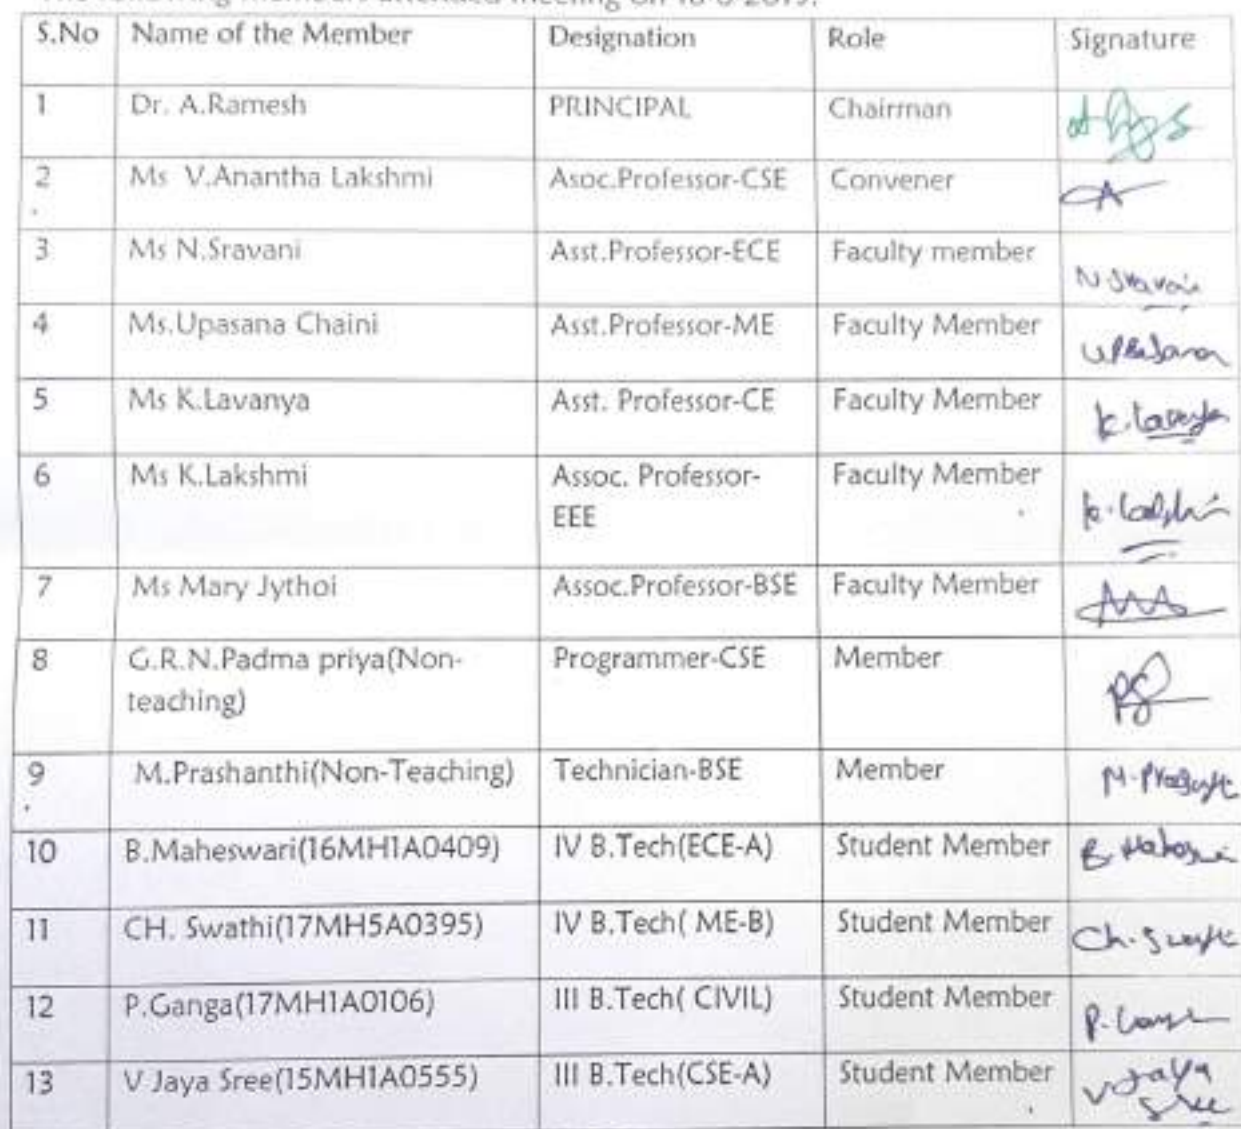 The following members attended meeting on 18-6-2019.
S.No Name of the Member Designation Role Signature
1 Dr. A.Ramesh PRINCIPAL Chairman
2 Ms V.Anantha Lakshmi Asoc.Professor-CSE Convener
3 Ms N.Sravani Asst.Professor-ECE Faculty member N Sravani
4 Ms.Upasana Chaini Asst.Professor-ME Faculty Member Upasana
5 Ms K.Lavanya Asst. Professor-CE Faculty Member K.Lavanya
6 Ms K.Lakshmi Assoc. Professor- Faculty Member K.Lakshmi
EEE
7 Ms Mary Jythoi Assoc.Professor-BSE Faculty Member
8 G.R.N.Padma priya(Non- Programmer-CSE Member
teaching)
9 M.Prashanthi(Non-Teaching) Technician-BSE Member
10 B.Maheswari(16MH1A0409) IV B.Tech(ECE-A) Student Member
11 CH. Swathi(17MH5A0395) IV B.Tech( ME-B) Student Member Ch.Swathi
12 P.Ganga(17MH1A0106) III B.Tech( CIVIL) Student Member P.Ganga
13 V Jaya Sree(15MH1A0555) III B.Tech(CSE-A) Student Member V Jaya
Sree